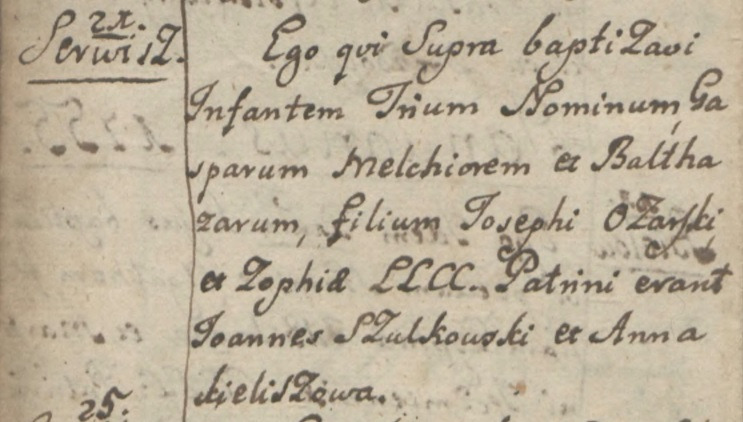 21.
SerwisZ.
Ego qvi Supra baptiZavi
Infantem Trium Nominum, Ga
sparum Melchiorem et Baltha
zarum, filium Josephi OZarski
et Zophiæ LLCC. Patrini erant
Joannes SZulkowski et Anna
kieliszowa.
25.